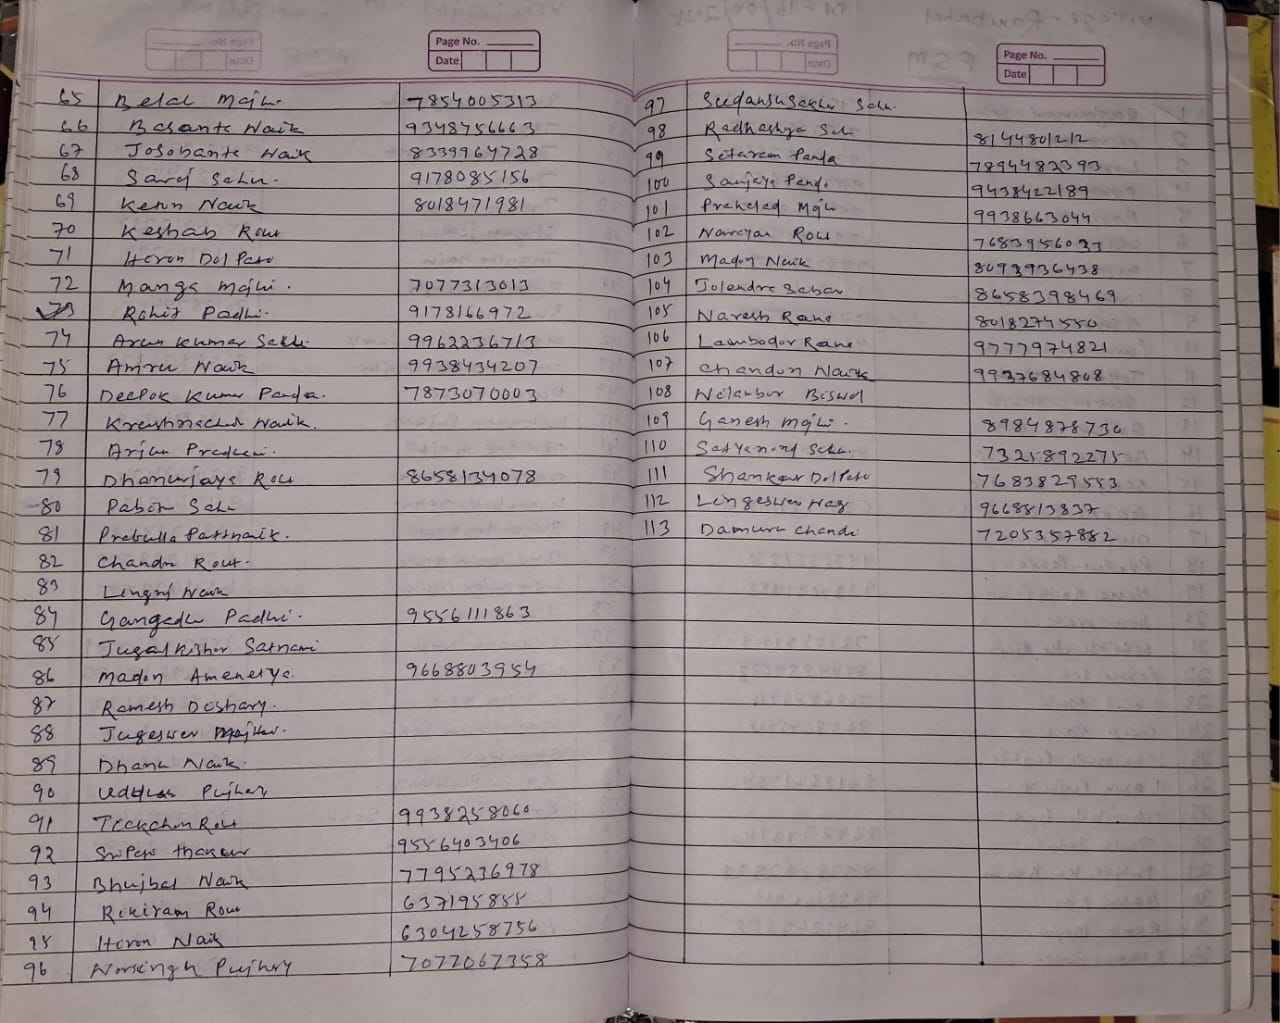 Page No.
Date
65 Belal Majhi. 7854005313
66 Basanta Naik 9348756663
67 Josobanta Naik 8339964728
68 Saroj Sahu. 9178085156
69 Kenn Naik 8018471981
70 Keshab Rout
71 Heron Dol Pato
72 Mangs Majhi. 7077313013
73 Rohit Padhi. 9178166972
74 Arun Kumar Sahu 9962236713
75 Amru Naik 9938434207
76 Deepok Kumar Panda. 7873070003
77 Naik.
78 Arjun Pradhan.
79 Dhanurjaya Rout 8658134078
80 Pabin Sahu
81 Prabulla Pattnaik.
82 Chandra Rout.
83 Lingraj Naik
84 Gangadhu Padhi. 9556111863
85 Jugal Kishor Satnami
86 Madon Amenetya. 9668803954
87 Ramesh Doshary.
88 Jugeswer Majhi.
89 Dhana Naik.
90 Udhhas Pujhary
91 Teekchan Rout 9938258060
92 SriPato thakeur 9556403406
93 Bhujbal Naik 7795236978
94 Rekiram Rout 637195855
95 Heron Naik 6304258756
96 Norsingh Pujhary 7077067358
Page No.
Date
97 Sahu.
98 Radheshya Sahu 8144801212
99 Setaram Panda 7894482393
100 Sanjaya Panda 9438422189
101 Prahelad Majhi 9938663044
102 Narayan Rout 7683956037
103 Madon Naik 8093936438
104 Jolendra Sabar 8658398469
105 Naresh Rana 8018274550
106 Lambodor Rana 9777974821
107 Chandon Naik 9937684808
108 Nilambor Biswal
109 Ganesh Majhi. 8984878730
110 Satyanand Sahu. 7325892275
111 Shankar DolPato 7683829553
112 Lingeswer Nag 9668813837
113 Damuru Chanda 7205357882